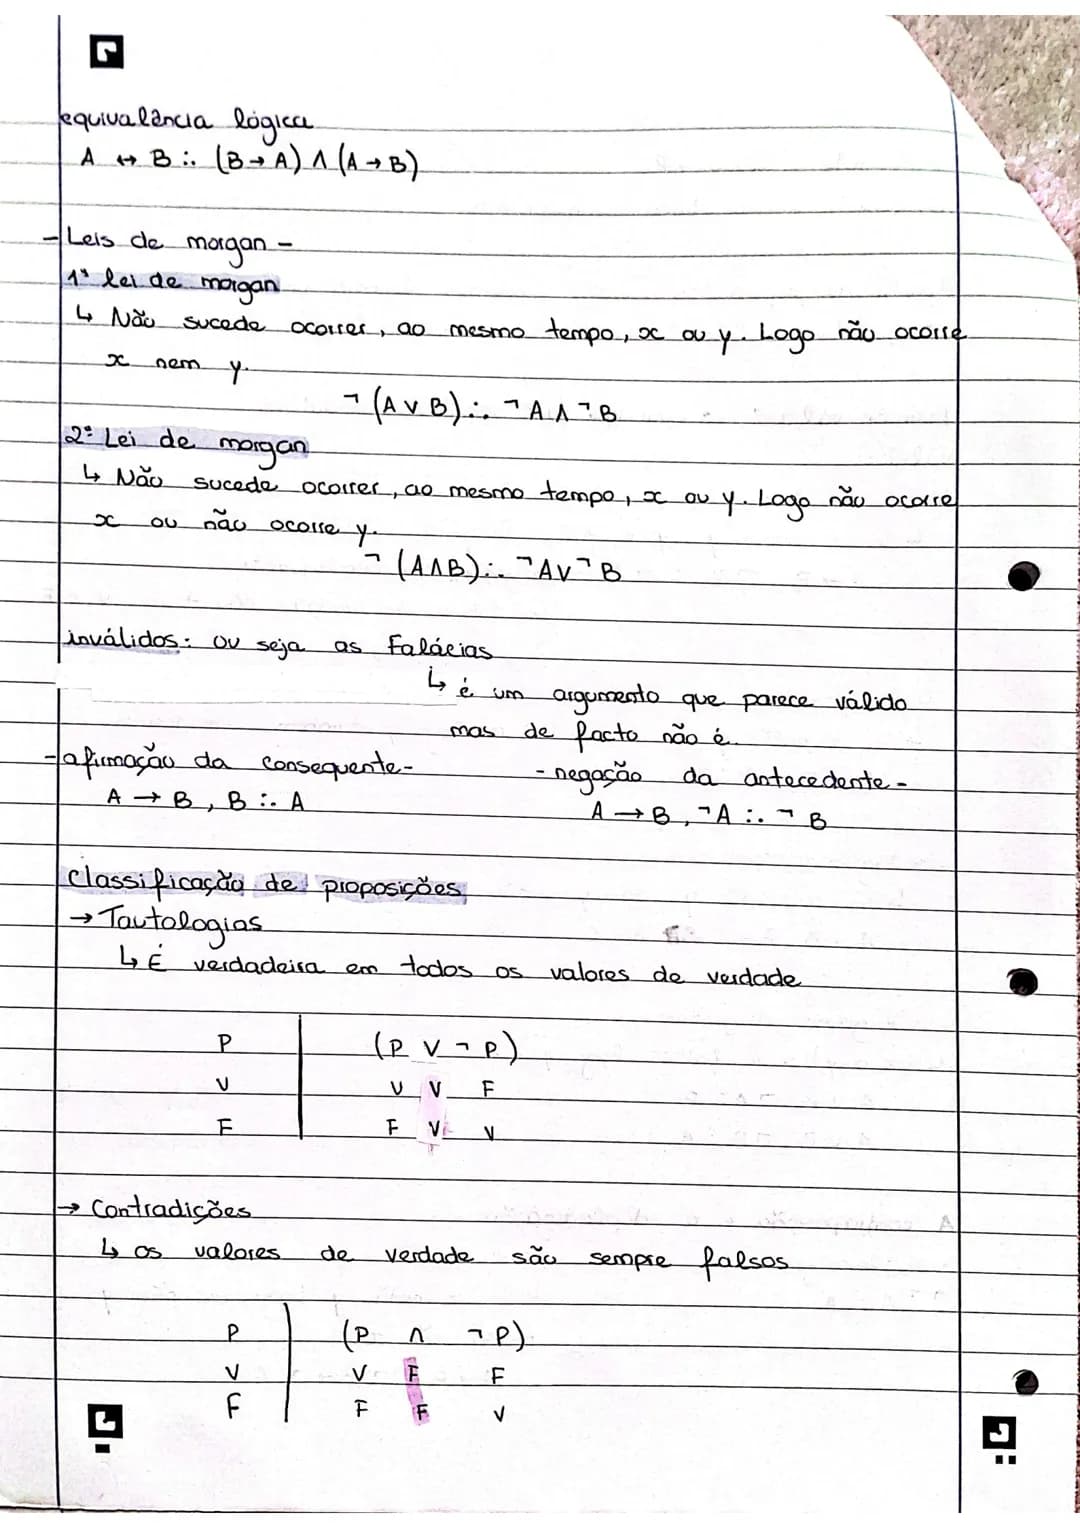 equivalência lógica
A ↔ B ∴ (B → A) ∧ (A → B)
- Leis de morgan -
1ª lei de morgan
↳ Não sucede ocorrer, ao mesmo tempo, x ou y. Logo não ocorre
x nem y.
¬ (A ∨ B) ∴ ¬A ∧ ¬B
2ª Lei de morgan
↳ Não sucede ocorrer, ao mesmo tempo, x ou y. Logo não ocorre
x ou não ocorre y.
¬ (A ∧ B) ∴ ¬A ∨ ¬B
inválidos: ou seja as Falácias
↳ é um argumento que parece válido
mas de facto não é.
- afirmação da consequente -
A → B, B ∴ A
- negação da antecedente -
A → B, ¬A ∴ ¬B
Classificação de proposições
→ Tautologias
↳ É verdadeira em todos os valores de verdade
P | (P ∨ ¬ P)
V | V V F
F | F V V
→ Contradições
↳ os valores de verdade são sempre falsos
P | (P ∧ ¬ P)
V | V F F
F | F F V